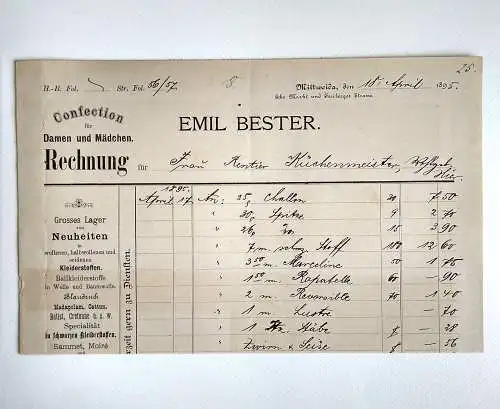 25.
H.-B. Fol. Str. Fol. 56/57 8 Mittweida, den 18. April 1895.
Ecke Markt und Freiberger Strasse
Confection
für
Damen und Mädchen.
EMIL BESTER.
Rechnung für Frau Rentier Küchenmeister,
Hier.
1895.
April 17. An: 25 Challon 20 7 50
" 30 Spitze 9 2 70
" 26 15 3 90
" 7 m. schw. Stoff 180 12 60
" 3 50 m. Marceline 50 1 75
" 1 50 m. 60 — 90
" 2 m. Reversible 70 1 40
" 1 m. Lustre — 70
" 1 Stäbe — 28
" Zwirn & Seide — 56
Grosses Lager
von
Neuheiten
in
wollenen, halbwollenen und
seidenen
Kleiderstoffen.
Ballkleiderstoffe
in Wolle und Baumwolle.
Blaudruck
Madapolam, Cattun,
Batist, Cretonne u. s. w.
Specialität
in schwarzen Kleiderstoffen.
Sammet, Moiré
erzeit gern zu Diensten.